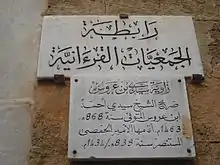 رابطة
الجمعيات القرءانية
زاوية سيدي بن عروس
ضريح الشيخ سيدي أحمد
ابن عروس المتوفى سنة 868هـ
1463م. أقامها الأمير الحفصي
المنتصر سنة 838هـ/1434م